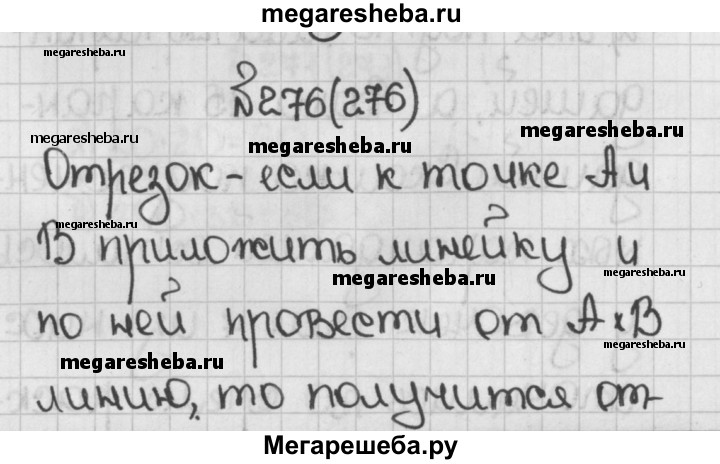 megaresheba.ru
megaresheba.ru
№276(276)
megaresheba.ru
megaresheba.ru
megaresheba.ru
Отрезок - если к точке А и
megaresheba.ru
В приложить линейку и
megaresheba.ru
megaresheba.ru
по ней провести от А к В
megaresheba.ru
megaresheba.ru
линию, то получится от-
Мегарешеба.ру